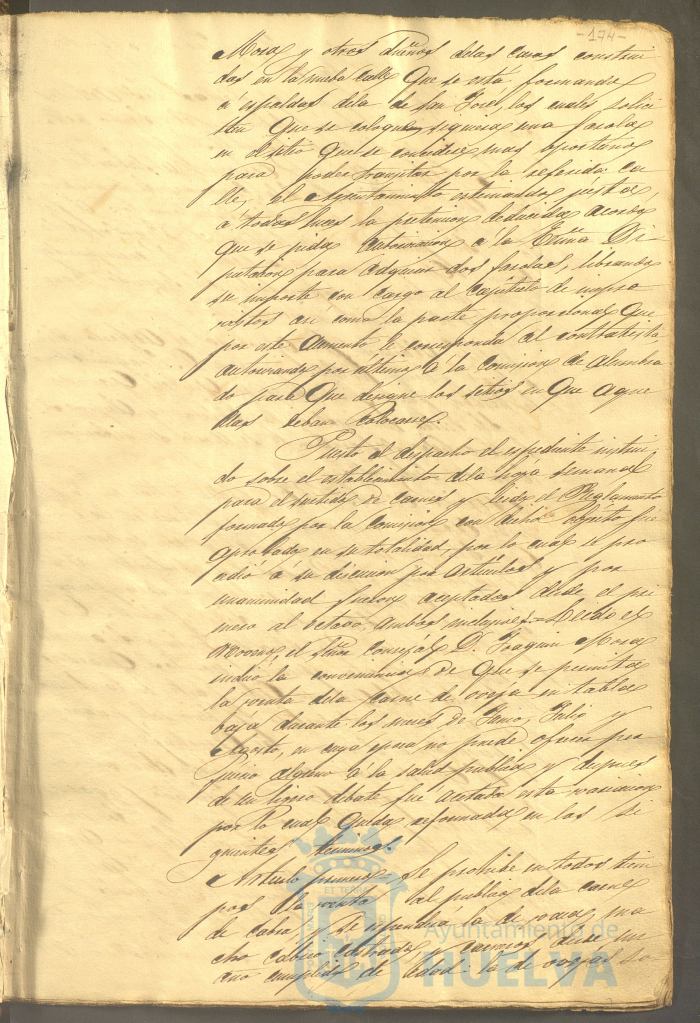 -174-
Mora y otros dueños de las casas construi
das en la nueva calle que se está formando
á espaldas de la de San José, los cuales solici
tan que se coloque siquiera una farola
en el sitio que se considere mas oportuno
para poder transitar por la referida ca
lle, el Ayuntamiento estimando justa
á todas luces la pretension deducida acordó
que se pida autorizacion á la Exma Di
putacion para adquirir dos farolas, librando
su importe con cargo al Capitulo de impre
vistos asi como la parte proporcional que
por este aumento le corresponda al contratista
autorizando por último á la Comision de alumbra
do para que designe los sitios en que aque
llas deban colocarse.
Puesto al despacho el espediente instrui
do sobre el establecimiento de la hoja semanal
para el surtido de carnes y leido el Reglamento
formado por la Comision con dicho objeto fue
aprobado en su totalidad, por lo cual se pro
cedió á su discusion por artículos y por
unanimidad fueron aceptados desde el pri
mero al octavo ambos inclusives. Leido el
noveno, el Señor Concejal D. Joaquin Mora
indicó la conveniencia de que se permita
la venta de la carne de oveja en tabla
baja durante los meses de Junio, Julio y
Agosto, en cuya epoca no puede ofrecer per
juicio alguno á la salud publica y despues
de un ligero debate fué aceptada esta variacion
por lo cual queda reformado en los si
guientes terminos.
Artículo primero Se prohibe en todos tiem
pos la venta al publico de la carne
de cabra. Se expenderá la de vaca, ma
cho cabrio castrado y carneros desde un
año cumplido de edad. La de ovejas so
Ayuntamiento de
HUELVA